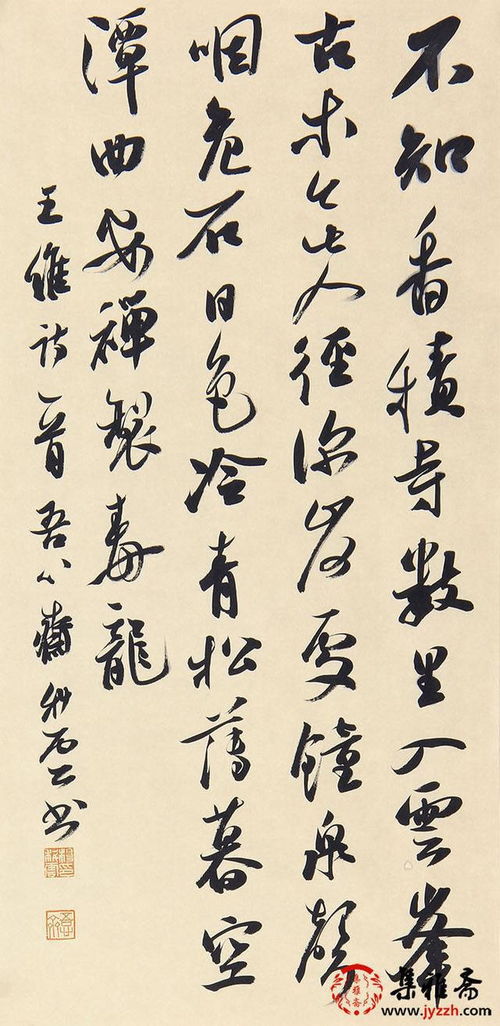 不知香積寺數里入雲峯
古木無人徑深山何處鐘泉聲
咽危石日色冷青松薄暮空
潭曲安禪製毒龍
王維詩一首吾心齋書
集雅斋
集雅斋
www.jyzzh.com